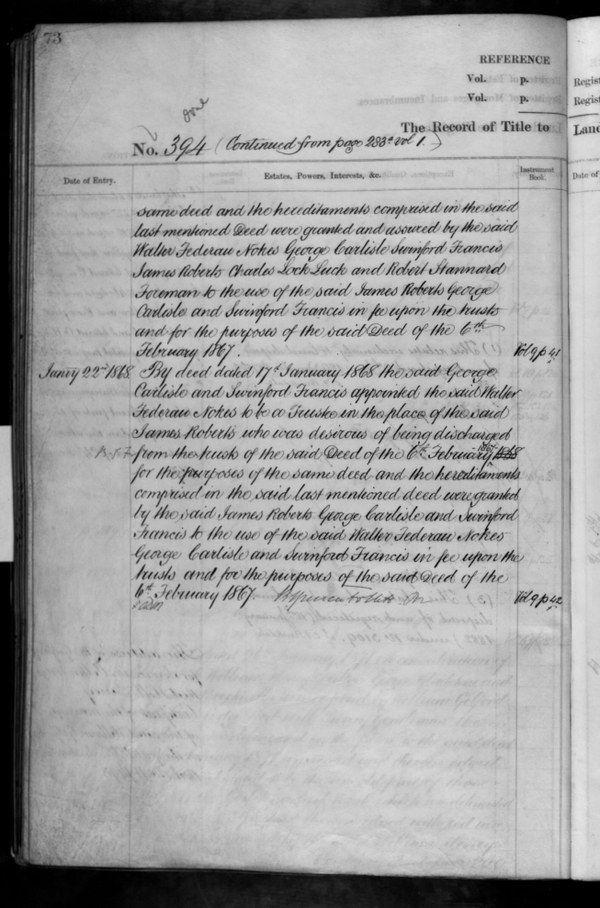 73
REFERENCE
Vol. p.
Vol. p.
one
The Record of Title to
No. 394 (Continued from page 283a vol 1.)
Date of Entry.
Estates, Powers, Interests, &c.
Instrument Book.
same deed and the hereditaments comprised in the said
last mentioned Deed were granted and assured by the said
Walter Federau Nokes George Carlisle Swinford Francis
James Roberts Charles Lock Luck and Robert Stannard
Foreman to the use of the said James Roberts George
Carlisle and Swinford Francis in fee upon the trusts
and for the purposes of the said Deed of the 6th
February 1867. Vol 9 p 41
Janry 22nd 1868 By deed dated 17th January 1868 the said George
Carlisle and Swinford Francis appointed the said Walter
Federau Nokes to be a Trustee in the place of the said
James Roberts who was desirous of being discharged
from the trusts of the said Deed of the 6th February 1867 1868
for the purposes of the same deed and the hereditaments
comprised in the said last mentioned deed were granted
by the said James Roberts George Carlisle and Swinford
Francis to the use of the said Walter Federau Nokes
George Carlisle and Swinford Francis in fee upon the
trusts and for the purposes of the said Deed of the
6th February 1867. Vol 9 p 42
Regist
Regist
Land
Date of